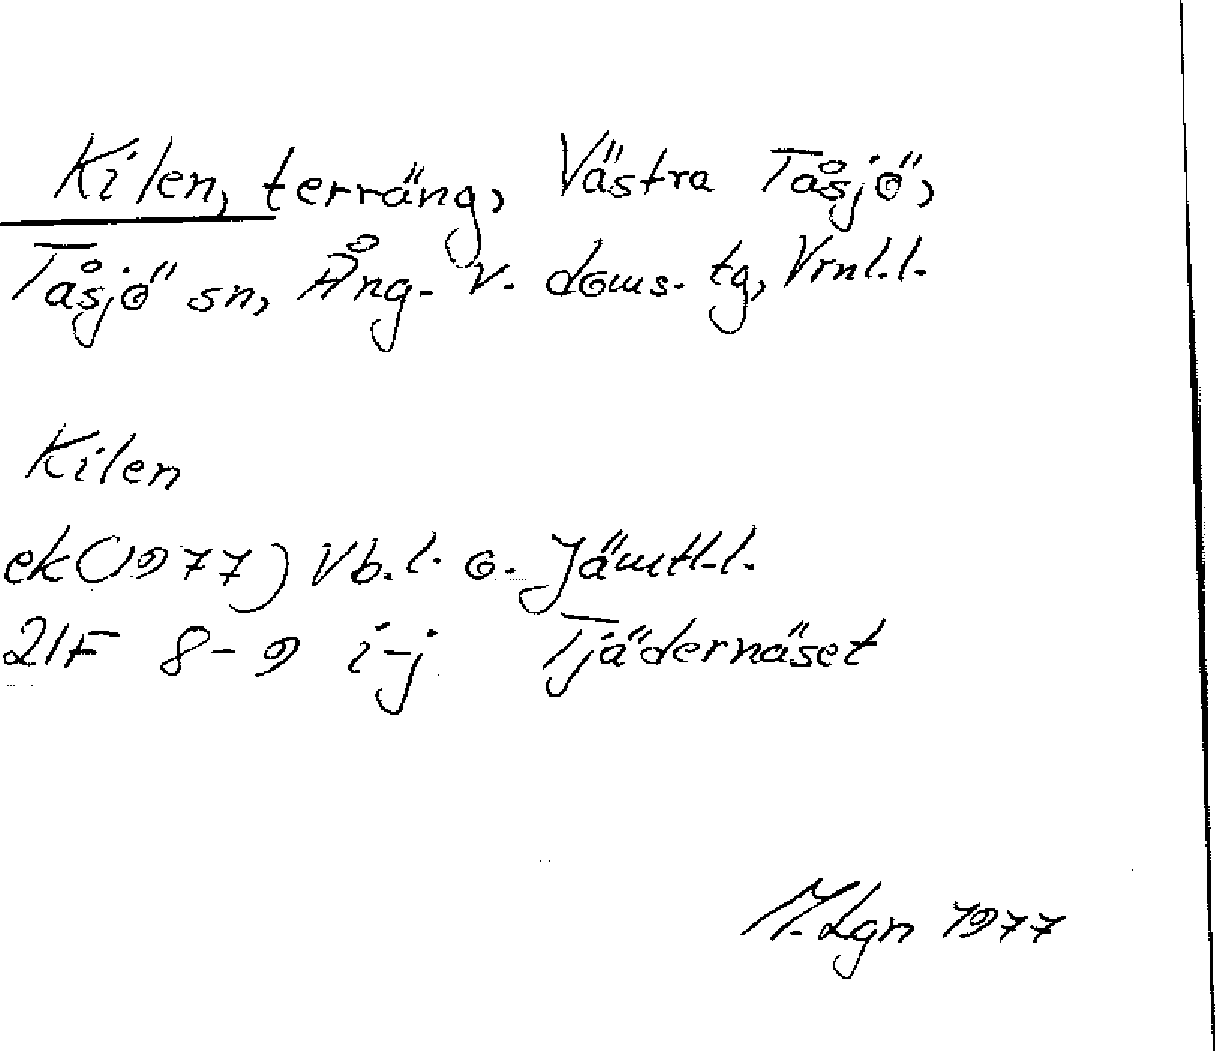 Kilen, terräng, Västra Tåsjö,
Tåsjö sn, Ång. v. doms. tg, Vrnl.l.
Kilen
ek (1977) Vb. l. o. Jämtl.l.
21F 8-9 i-j Tjädernäset
M. Lgn 1977